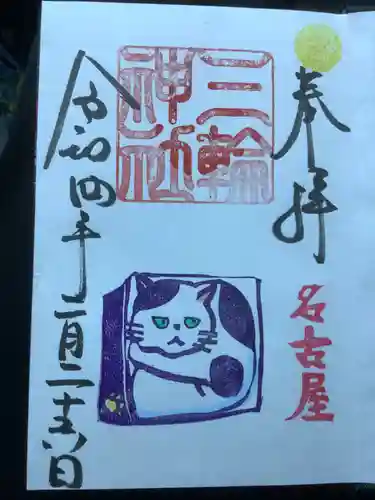 奉拝
名古屋
三輪
神社
令和四年二月二十六日